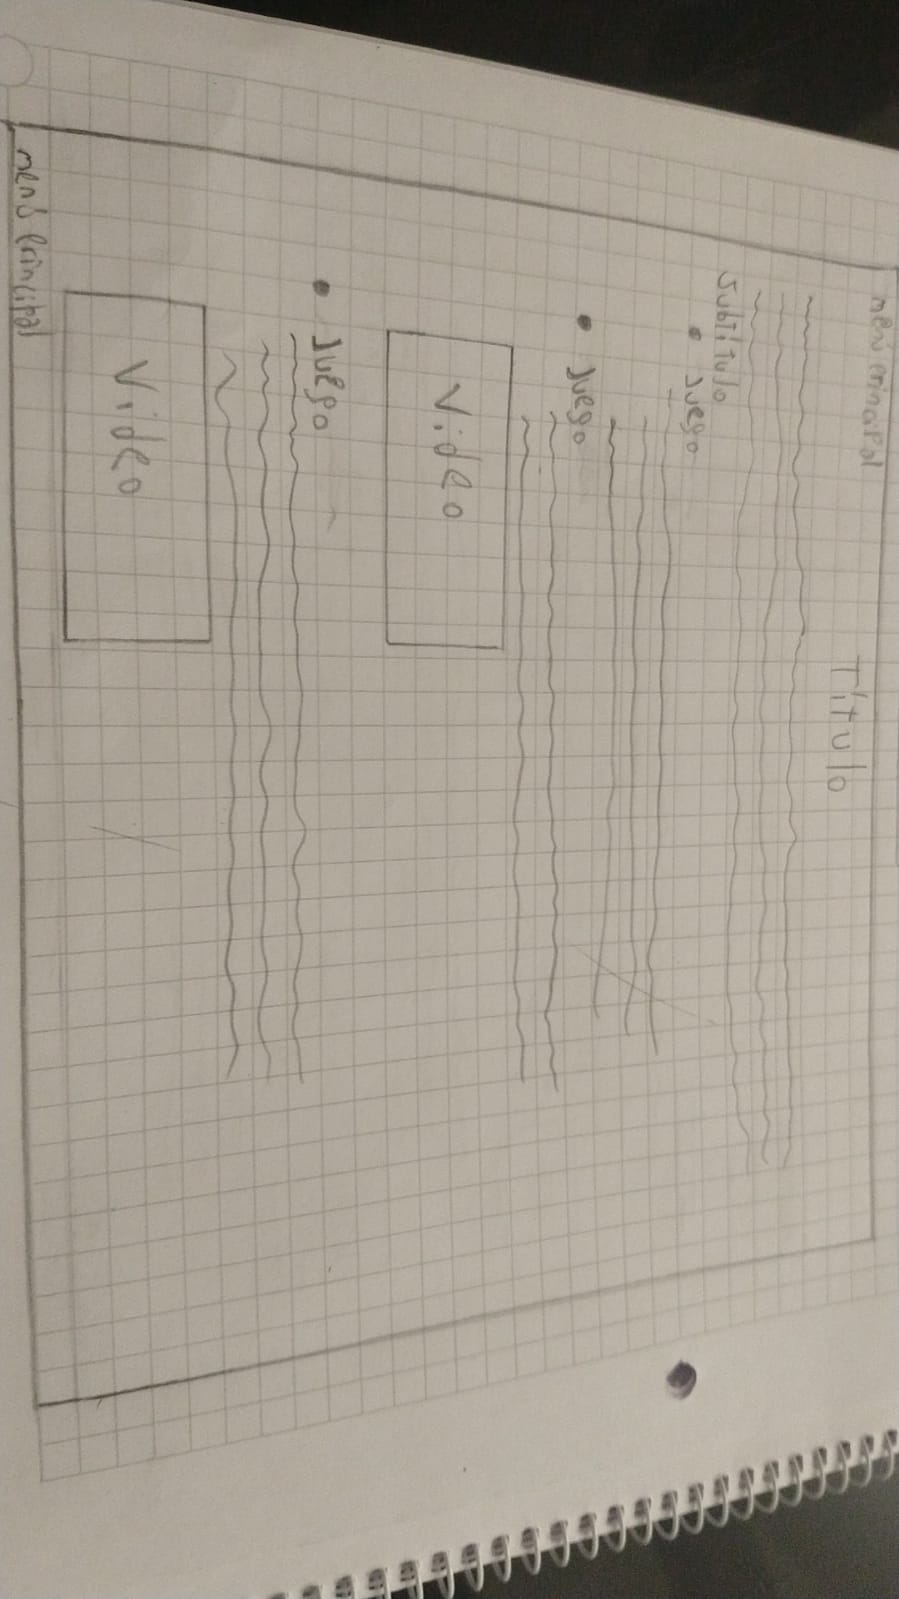 menú principal
Título
Subtítulo
• Juego
• Juego
Video
• Juego
Video
menú principal